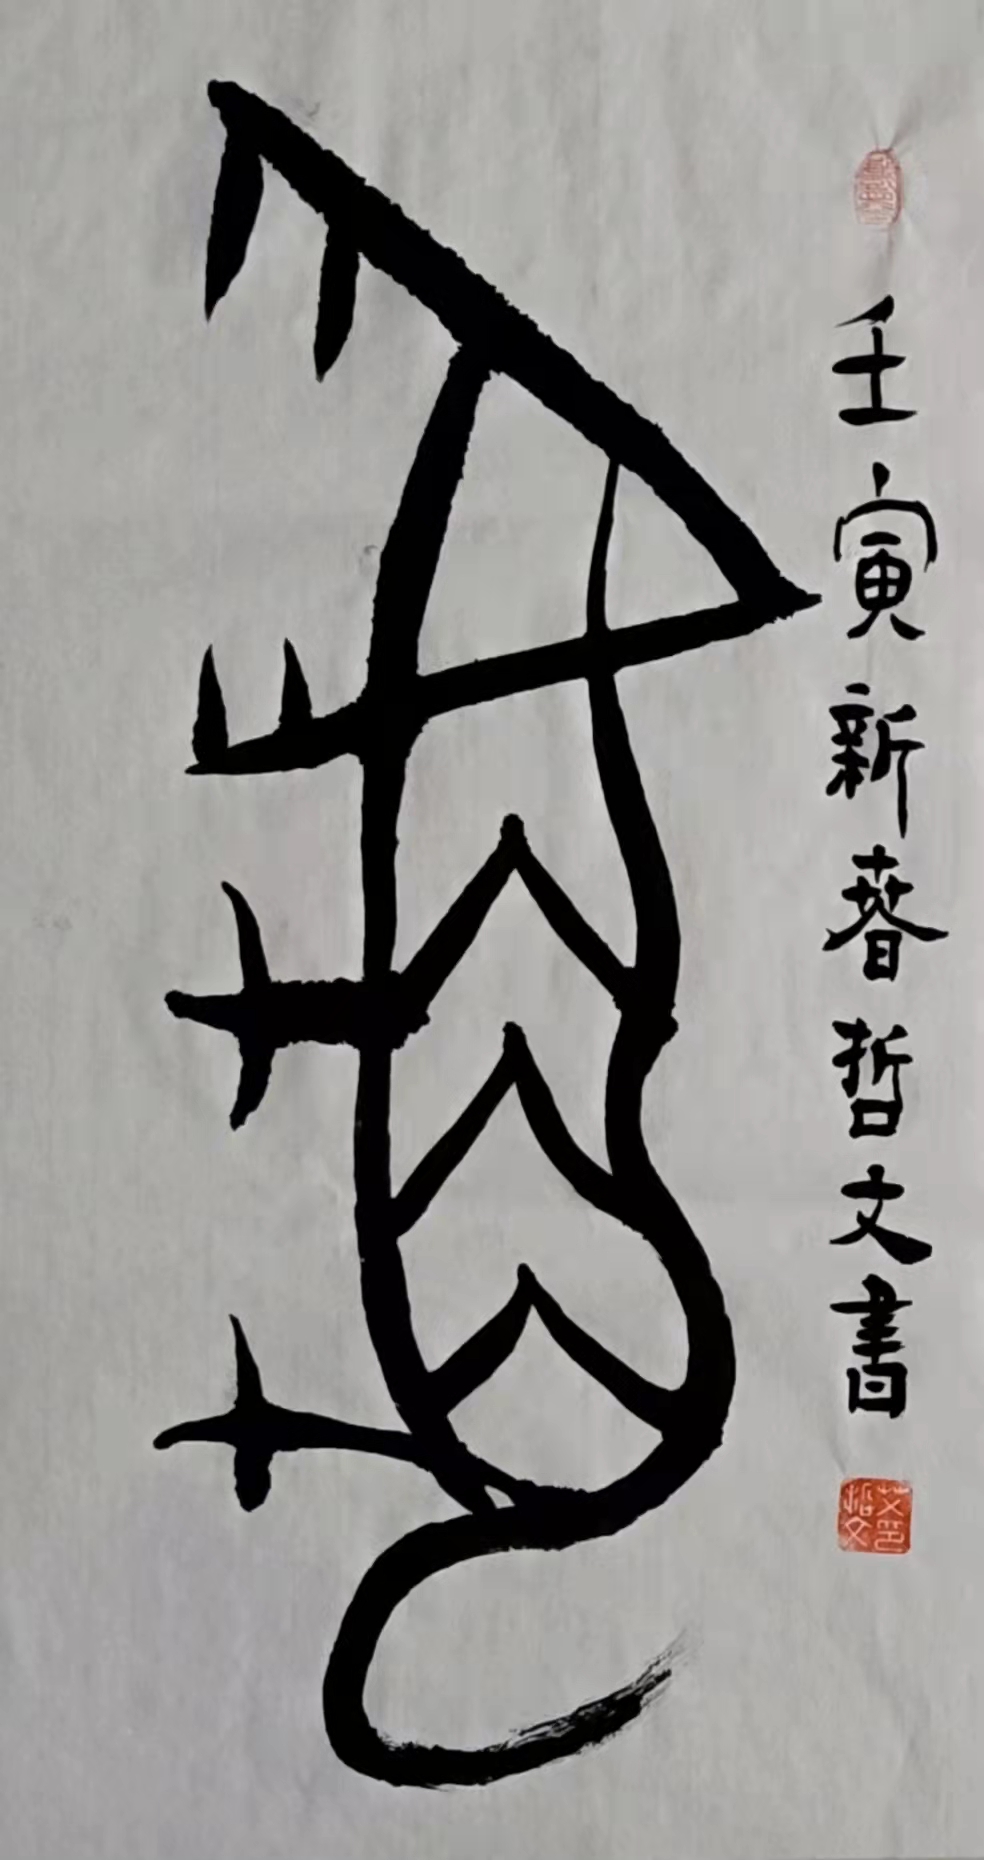 虎
壬寅新春哲文書